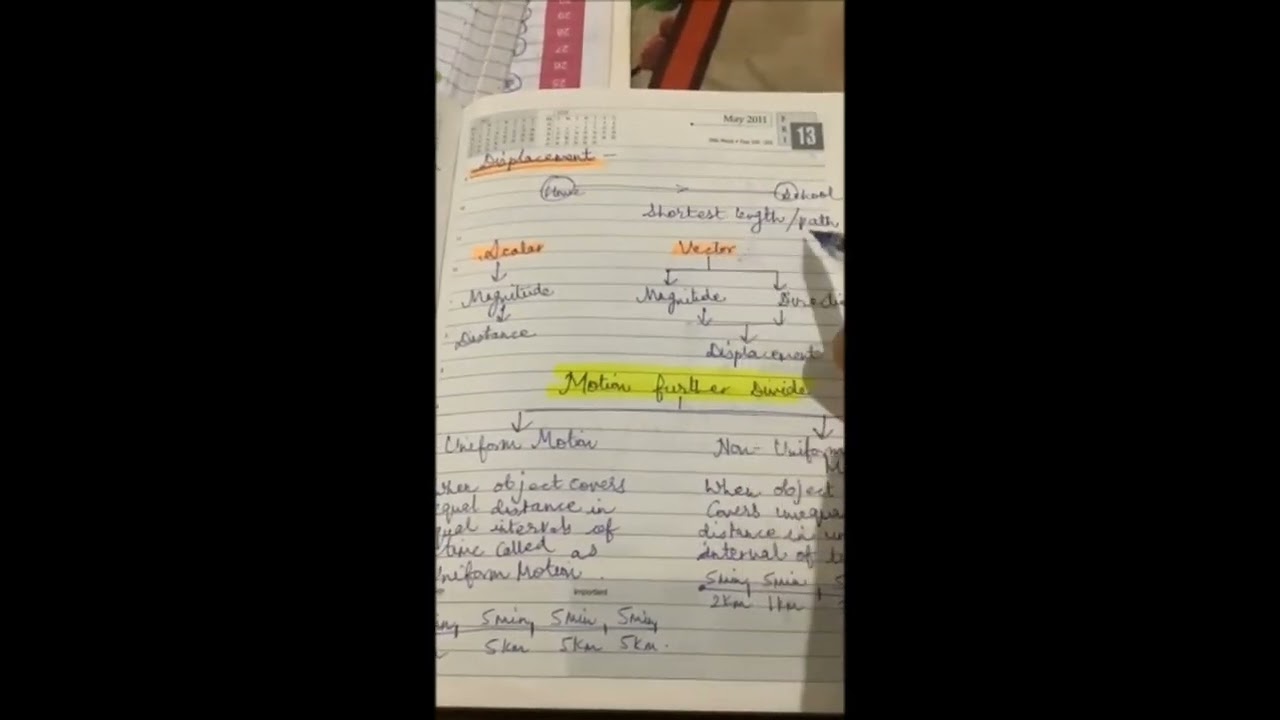 May 2011
13
Displacement —
House School
Shortest length/path
Scalar Vector
Magnitude Magnitude Directi
Distance
Displacement
Motion further Divide
Uniform Motion Non-Uniform
M
when object covers When object
equal distance in Covers unequa
qual intervals of distance in un
time called as interval of t
Uniform Motion.
Important
5min 5min 5
2km 1km
5min 5min 5min
5km 5km 5km.